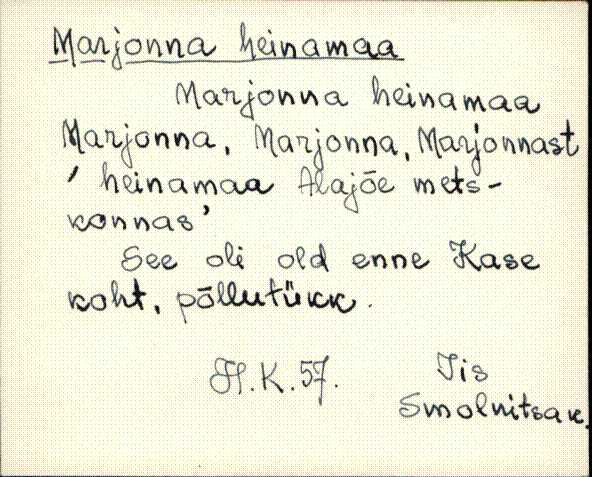 Marjonna heinamaa
Marjonna heinamaa
Marjonna, Marjonna, Marjonnast
' heinamaa Alajõe mets-
konnas'
See oli old enne Kase
koht, põllutükk.
H.K.57. Iis
Smolnitsak.